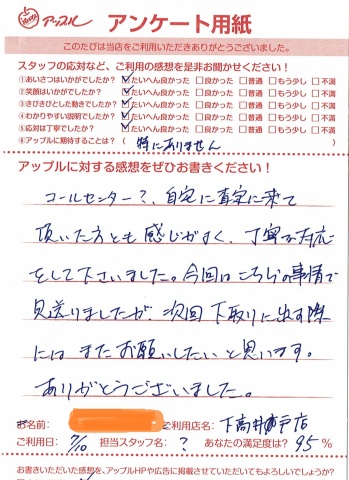 アップル アンケート用紙
このたびは当店をご利用いただきありがとうございました。
スタッフの応対など、ご利用の感想を是非お聞かせください！
①あいさつはいかがでしたか？ ☑たいへん良かった □良かった □普通 □もう少し □不満
②笑顔はいかがでしたか？ ☑たいへん良かった □良かった □普通 □もう少し □不満
③きびきびとした動きでしたか？ ☑たいへん良かった □良かった □普通 □もう少し □不満
④わかりやすい説明でしたか？ ☑たいへん良かった □良かった □普通 □もう少し □不満
⑤応対は丁寧でしたか？ ☑たいへん良かった □良かった □普通 □もう少し □不満
⑥アップルに期待することは？ （ 特にありません ）
アップルに対する感想をぜひお書きください！
コールセンター？、自宅に査定に来て
頂いた方とも感じがよく、丁寧な対応
をして下さいました。今回はこちらの事情で
見送りましたが、次回下取りに出す際
にはまたお願いしたいと思います。
ありがとうございました。
お名前： ご利用店名：下高井戸店
ご利用日：7/10 担当スタッフ名：？ あなたの満足度は？95％
お書きいただいた感想を、アップルHPや広告に掲載させていただいてもよろしいでしょうか？